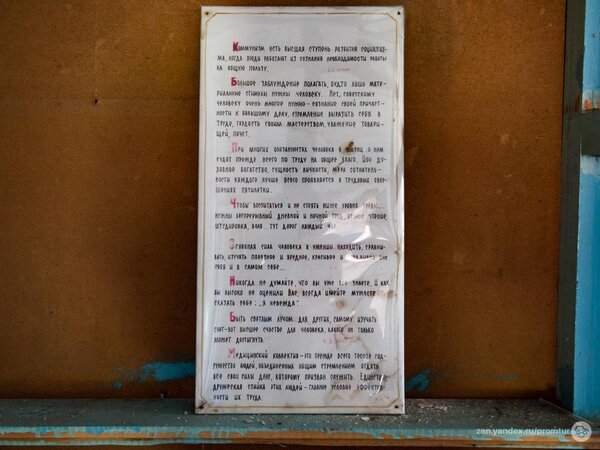 Коммунизм есть высшая ступень развития социализ-
ма, когда люди работают из сознания необходимости работы
на общую пользу.
Большое заблуждение полагать, будто лишь мате-
риальные стимулы нужны человеку. Нет, советскому
человеку очень многое нужно – сознание своей причаст-
ности к большому делу, стремление выразить себя в
труде, гордость своим мастерством, уважение товари-
щей, почет.
При многих обязанностях человека в жизни о нем
судят прежде всего по труду на общее благо. Ибо ду-
ховное богатство, сущность личности, мера сознатель-
ности каждого лучше всего проявляется в трудовых свер-
шениях пятилетки.
Чтобы воспитаться и не стоять ниже уровня среды...
нужны беспрерывный дневной и ночной труд, вечное чтение
штудировка, воля... Тут дорог каждый час.
Основная сила человека в умении находить, сравни-
вать, изучать полезное и вредное, красивое и вне
себя и в самом себе...
Никогда не думайте, что вы уже все знаете. И как
бы высоко не оценили Вас, всегда имейте мужество
сказать себе: „я невежда".
Быть светлым лучом для других, самому излучать
свет – вот высшее счастье для человека, какого он только
может достигнуть.
Медицинский коллектив – это прежде всего тесное сод-
ружество людей, объединенных общим стремлением отдать
все свои силы делу, которому призван служить. Единство,
дружеская спайка этих людей – главное условие эффектив-
ности их труда.
zen.yandex.ru/promtur